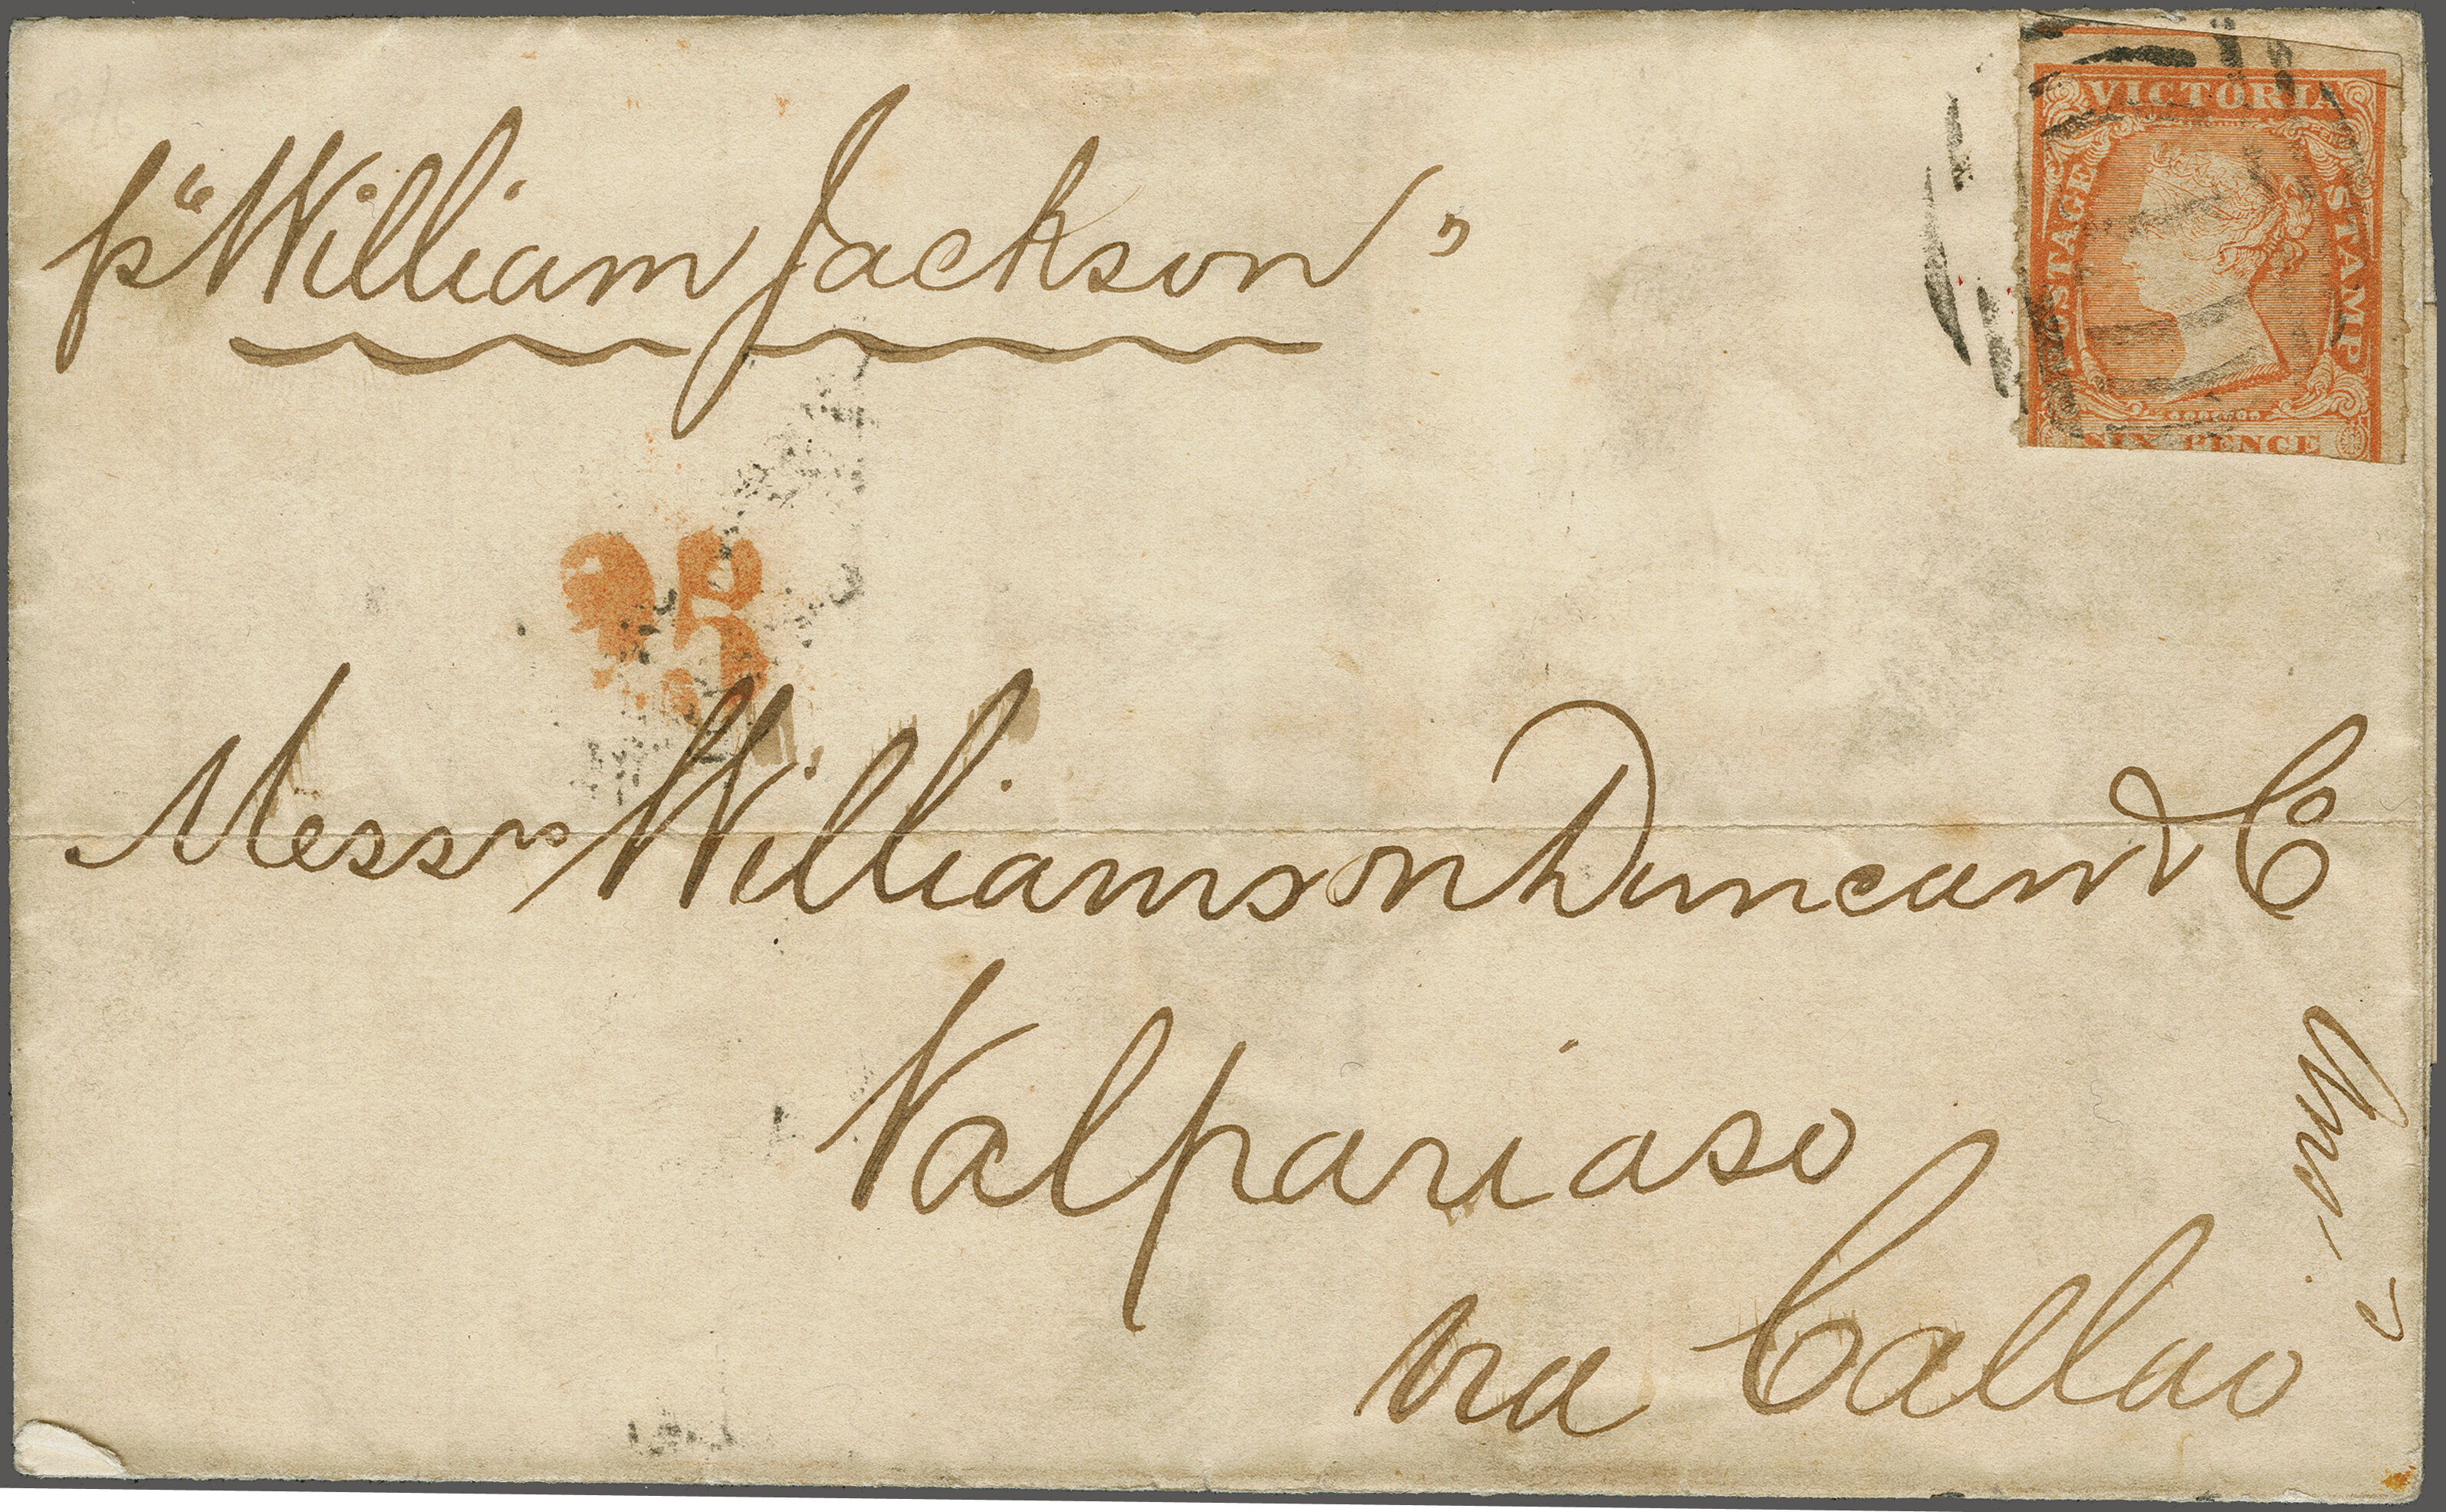 p "William Jackson"
VICTORIA
POSTAGE
STAMP
SIX PENCE
25
Messrs Williamson Duncan & Co
Valpariaso
via Callao